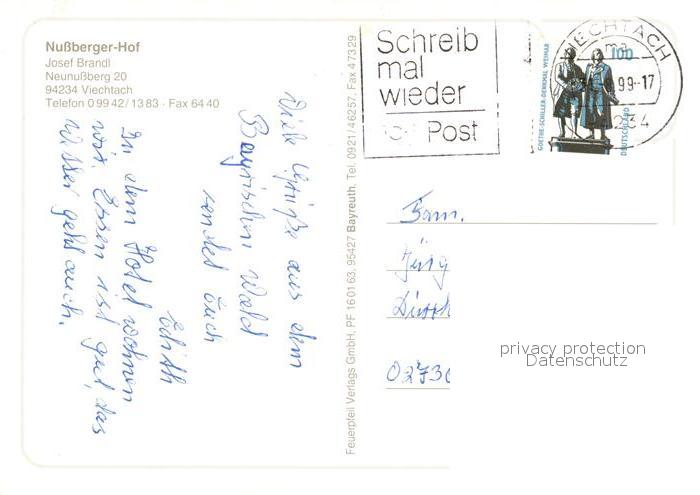 Nußberger-Hof
Josef Brandl
Neunußberg 20
94234 Viechtach
Telefon 0 99 42 / 13 83 · Fax 64 40
Viele Grüße aus dem
Bayrischen Wald
sendet Euch
Edith
In dem Hotel wohnen
wir. Essen ist gut, das
Wetter geht auch.
Feuerpfeil Verlags GmbH, PF 16 01 63, 95427 Bayreuth, Tel. 0921/46257, Fax 47329
Schreib
mal
wieder
Post
VIECHTACH
99-17
234
100
GOETHE-SCHILLER-DENKMAL WEIMAR
DEUTSCHLAND
Fam.
Jürg
0273
privacy protection
Datenschutz